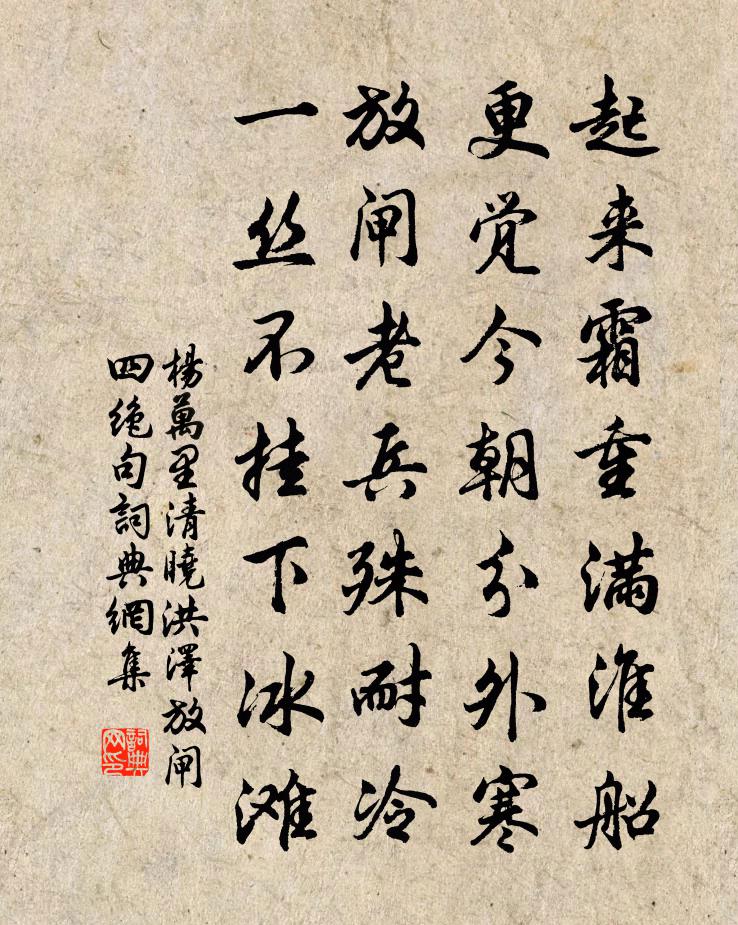 起来霜重满淮船
更觉今朝分外寒
放闸老兵殊耐冷
一丝不挂下冰滩
楊萬里清曉洪澤放闸
四绝句詞典網集
詞典
网印